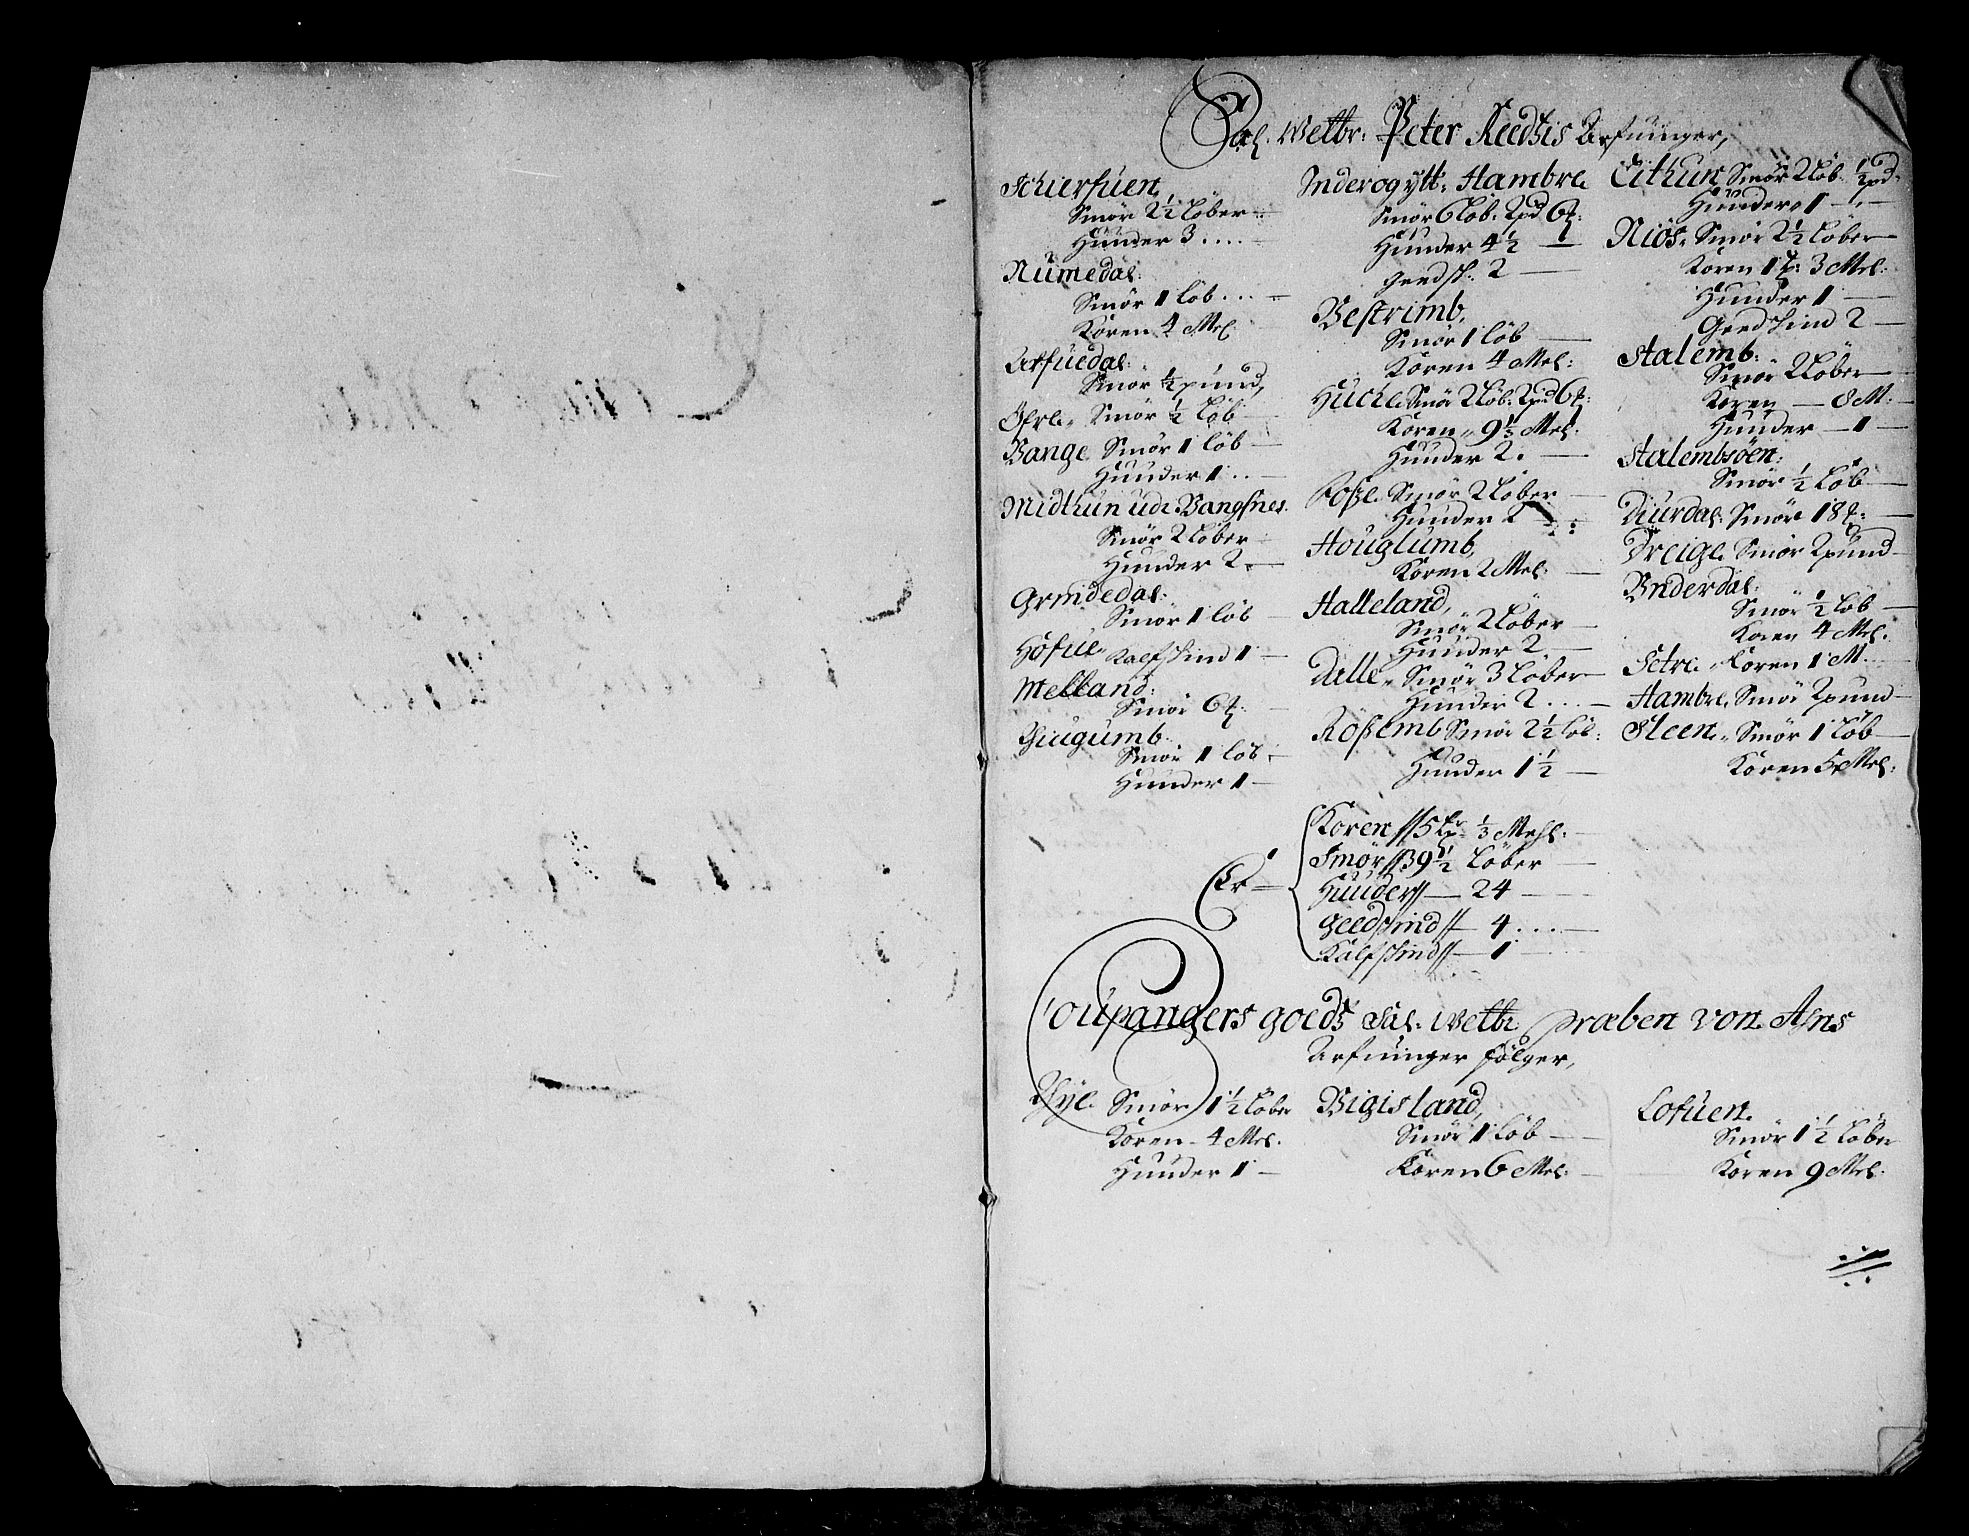 Sal. Welbr: Peter Reedtzis Arfuinger,
Schierfuen
Smör 2½ Löber
Hunder 3
Numedal:
Smör 1 Löb
Koren 4 Mel:
Arfuedal:
Smör ½ pund,
Ofrl. Smör ½ Löb
Vange Smör 1 Löb
Hunder 1
Midthun udi Vangsnes
Smör 2 Löber
Hunder 2
Grindedal:
Smör 1 Löb
Hofue Kalfskind 1
Melland:
Smör 6
Thugumb
Smör 1 Löb
Hunder 1
Inderogytt: Hambre
Smör 6 Löb. 2pd 6
Hunder 4½
geedsk: 2
Vestrimb,
Smör 1 Löb
Koren 4 Mel:
Hucke Smör 2 Löb: 2pd 6
Koren 9⅓ Mel:
Hunder 2
Smör 2 Löber
Hunder 2
Houglumb,
Koren 2 Mel:
Halleland,
Smör 2 Löber
Hunder 2
Dalle Smör 3 Löber
Hunder 2
Roßemb Smör 2½ Löb:
Hunder 1½
Eithun Smör 2 Löb: ½ pd
Hunder 1
Niös Smör 2½ Löber
Koren 1 3 Mel:
Hunder 1
Geedskind 2
Stalemb:
Smör 2 Löber
Koren 8 M:
Hunder 1
Stalembsöen:
Smör ½ Löb
Diurdal: Smör 18
Dreige Smör 2 pund
Vnderdal:
Smör ½ Löb
Koren 4 Mel:
Setre Koren 1 M
Hambre Smör 2 pund
Steen Smör 1 Löb
Koren 5 Mel:
Koren // 5 ⅓ Mehl:
Er
Smör // 39½ Löber
Hunder // 24
Geedskind // 4
Kalfskind // 1
Coupangers goeds Sal: Welbr Præben von Ahns
Arfuinger fölger,
Thye Smör 1½ Löber
Koren 4 Mel:
Hunder 1
Vigisland,
Smör 1 Löb
Koren 6 Mel:
Lofuen
Smör 1½ Löber
Koren 9 Mel: